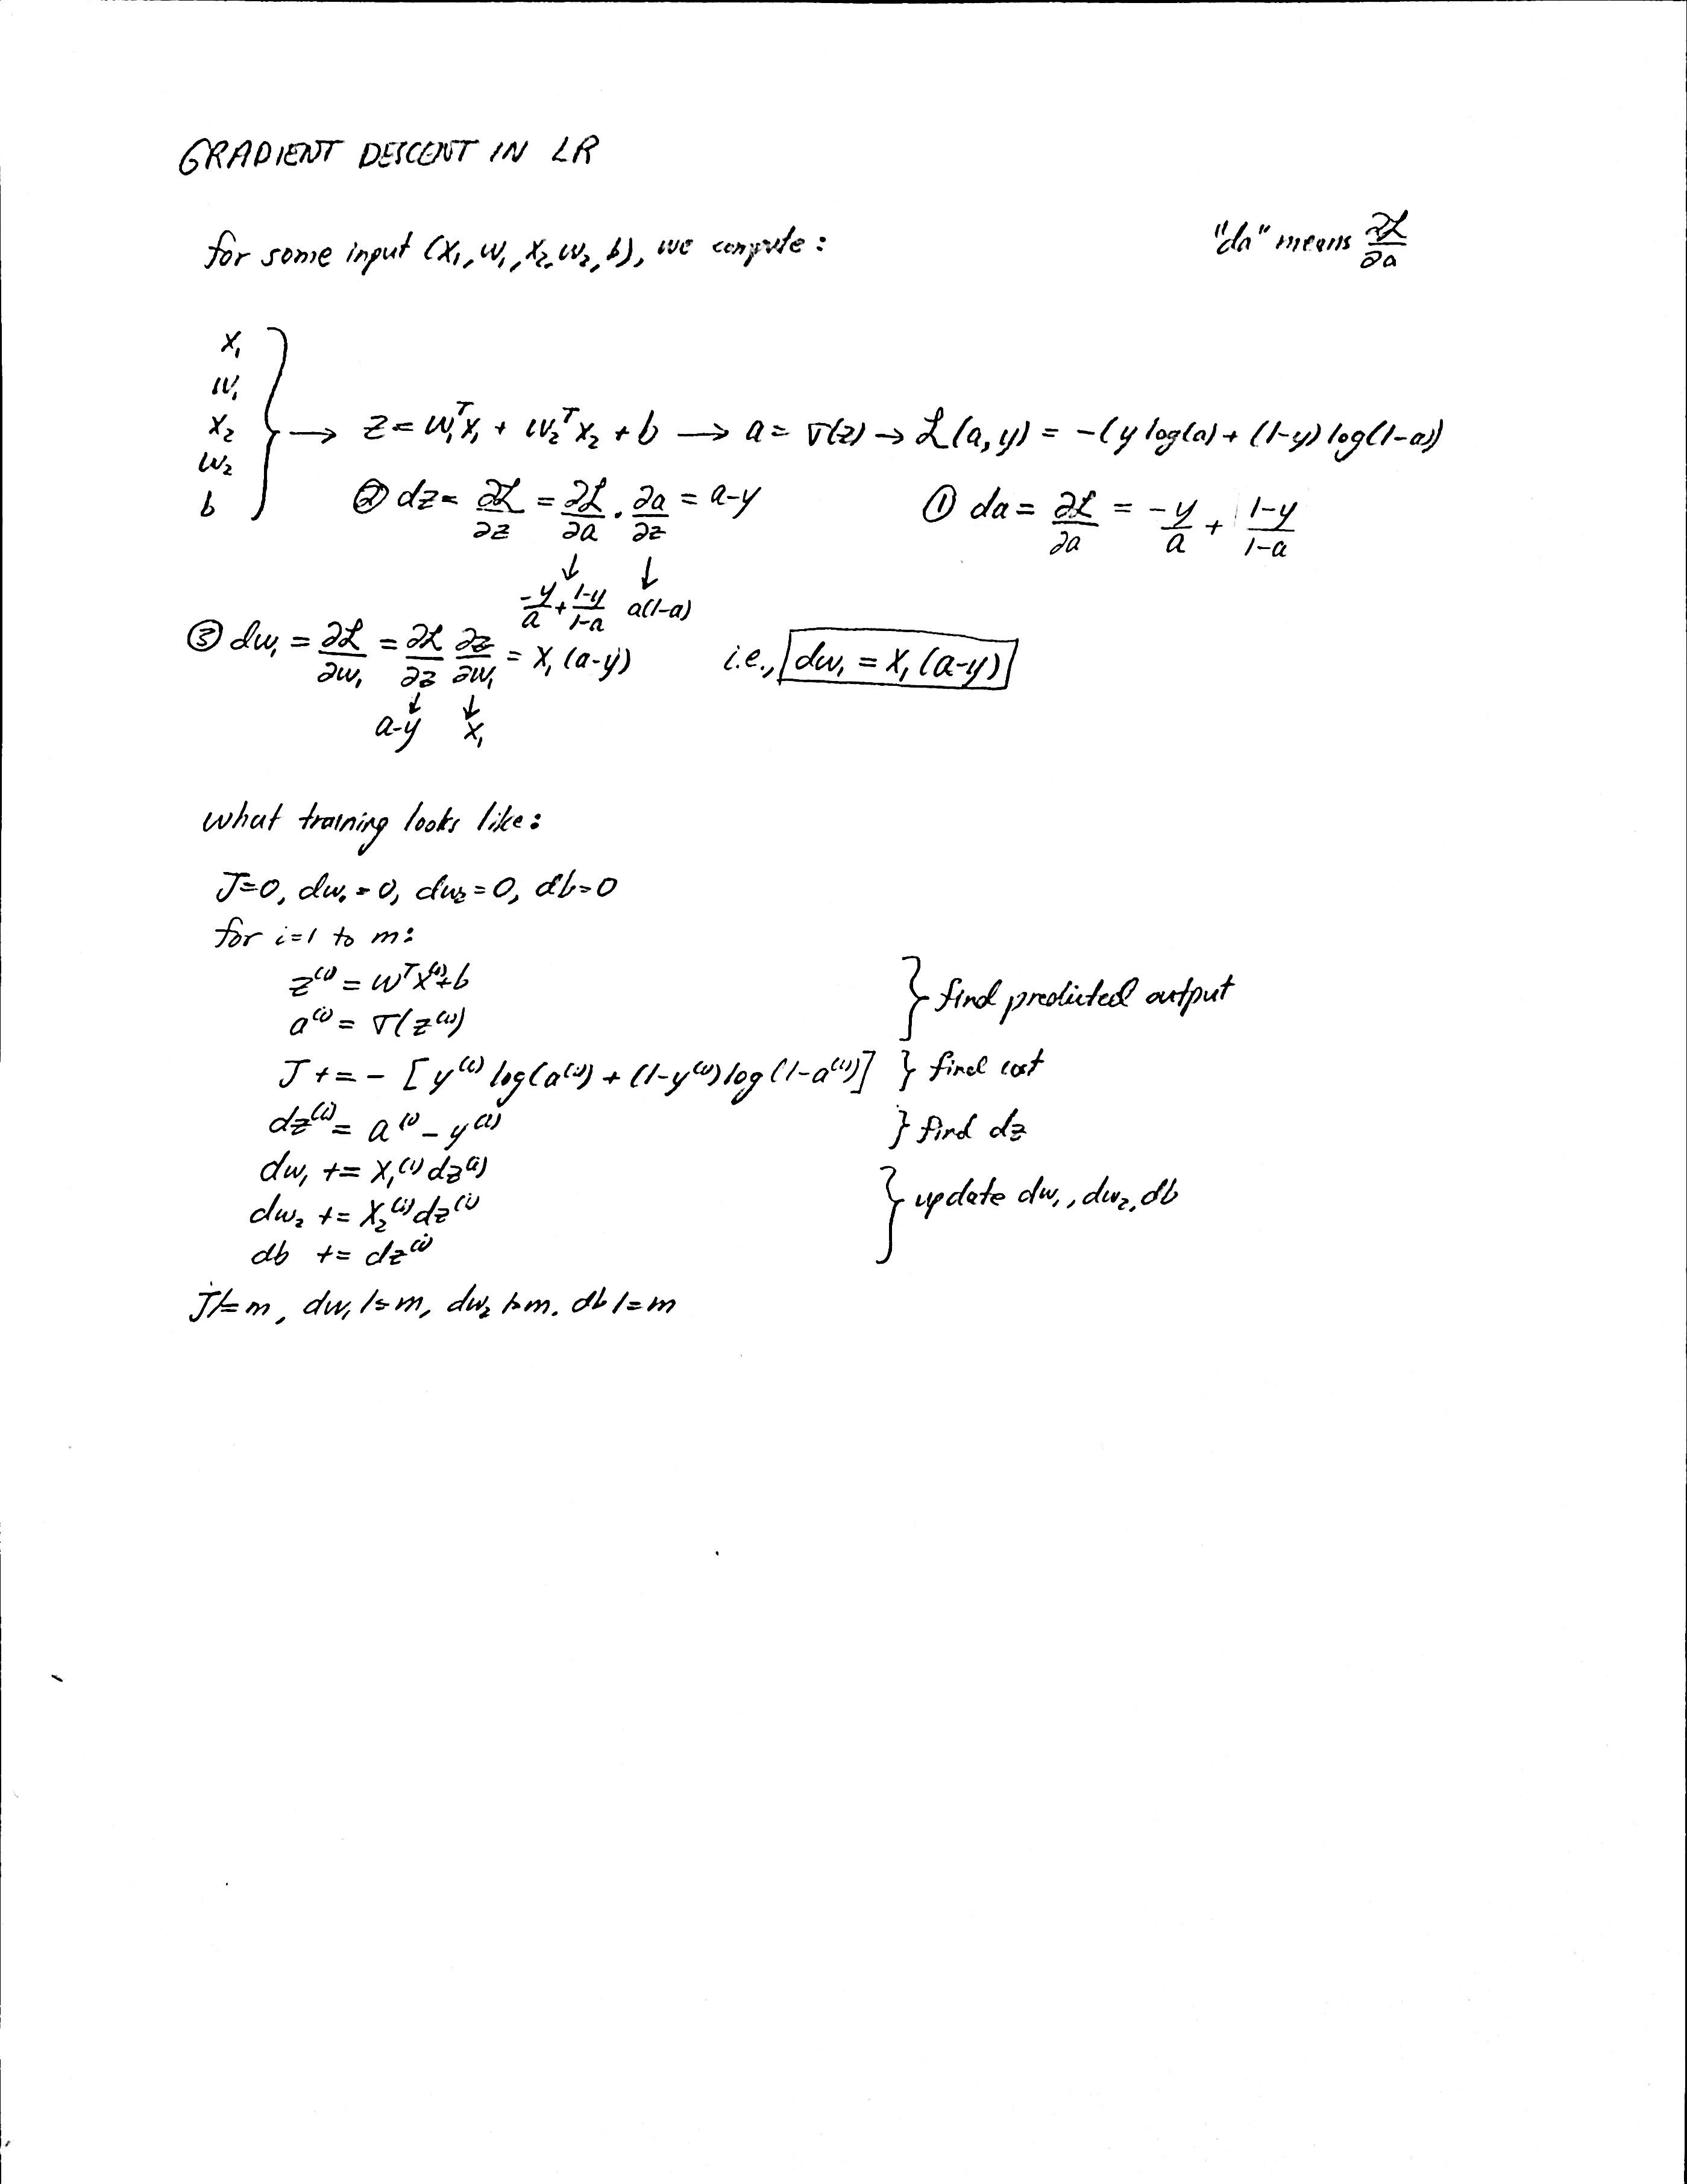 GRADIENT DESCENT IN LR
for some input (x₁, w₁, x₂, w₂, b), we compute:
"da" means ∂ℒ/∂a
x₁
w₁
x₂
w₂
b
} → z = w₁ᵀx₁ + w₂ᵀx₂ + b → a = σ(z) → ℒ(a, y) = -(y log(a) + (1-y) log(1-a))
② dz = ∂ℒ/∂z = ∂ℒ/∂a · ∂a/∂z = a-y
① da = ∂ℒ/∂a = -y/a + (1-y)/(1-a)
↓ ↓
-y/a + (1-y)/(1-a) a(1-a)
③ dw₁ = ∂ℒ/∂w₁ = ∂ℒ/∂z ∂z/∂w₁ = x₁ (a-y) i.e., dw₁ = x₁ (a-y)
↓ ↓
a-y x₁
what training looks like:
J=0, dw₁=0, dw₂=0, db=0
for i=1 to m:
z⁽ⁱ⁾ = wᵀx⁽ⁱ⁾+b
a⁽ⁱ⁾ = σ(z⁽ⁱ⁾)
} find predicted output
J += - [y⁽ⁱ⁾ log(a⁽ⁱ⁾) + (1-y⁽ⁱ⁾) log(1-a⁽ⁱ⁾)] } find cost
dz⁽ⁱ⁾ = a⁽ⁱ⁾ - y⁽ⁱ⁾ } find dz
dw₁ += x₁⁽ⁱ⁾ dz⁽ⁱ⁾
dw₂ += x₂⁽ⁱ⁾ dz⁽ⁱ⁾
db += dz⁽ⁱ⁾
} update dw₁, dw₂, db
J/=m, dw₁/=m, dw₂/=m, db/=m